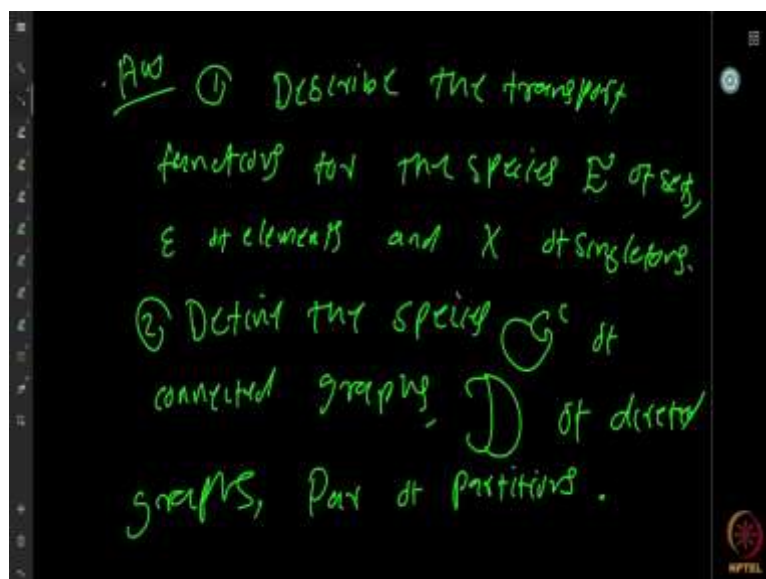 HW ① Describe the transport
functions for the species E of sets,
ε of elements and X of singletons.
② Define the species G^c of
connected graphs, D of directed
graphs, Par of partitions.
NPTEL